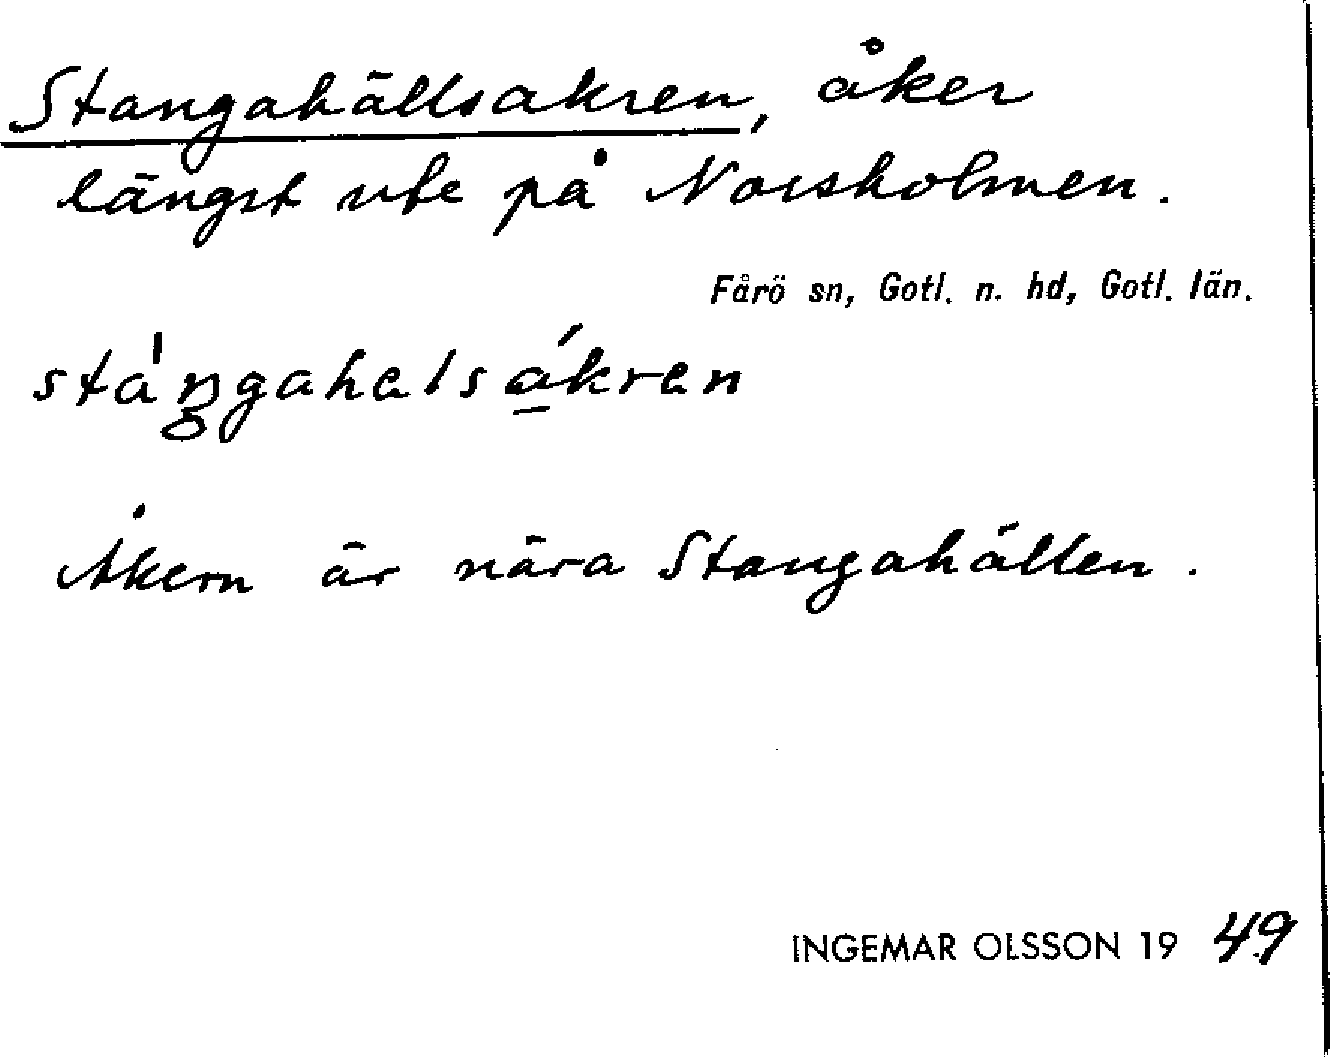 Stangahällsakren, åker
längst ute på Norsholmen.
Fårö sn, Gotl. n. hd, Gotl. län.
stáŋ̥gahalsá̱kren
Åkern är nära Stangahällen.
INGEMAR OLSSON 19 49